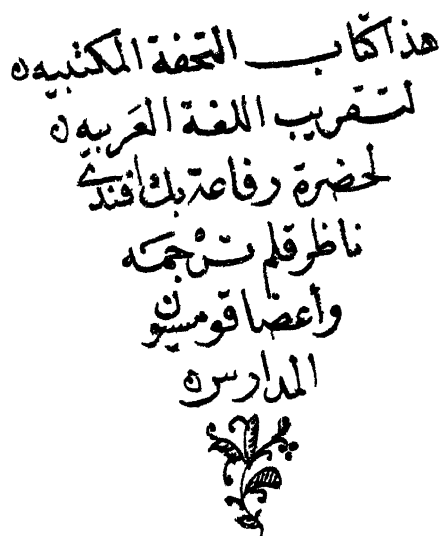 هذا كتاب التحفة المكتبيه
لتقريب اللغة العَربيه
لحضرة رفاعة بك افندي
ناظر قلم ترْجمه
وأعضا قومسيون
المدارس